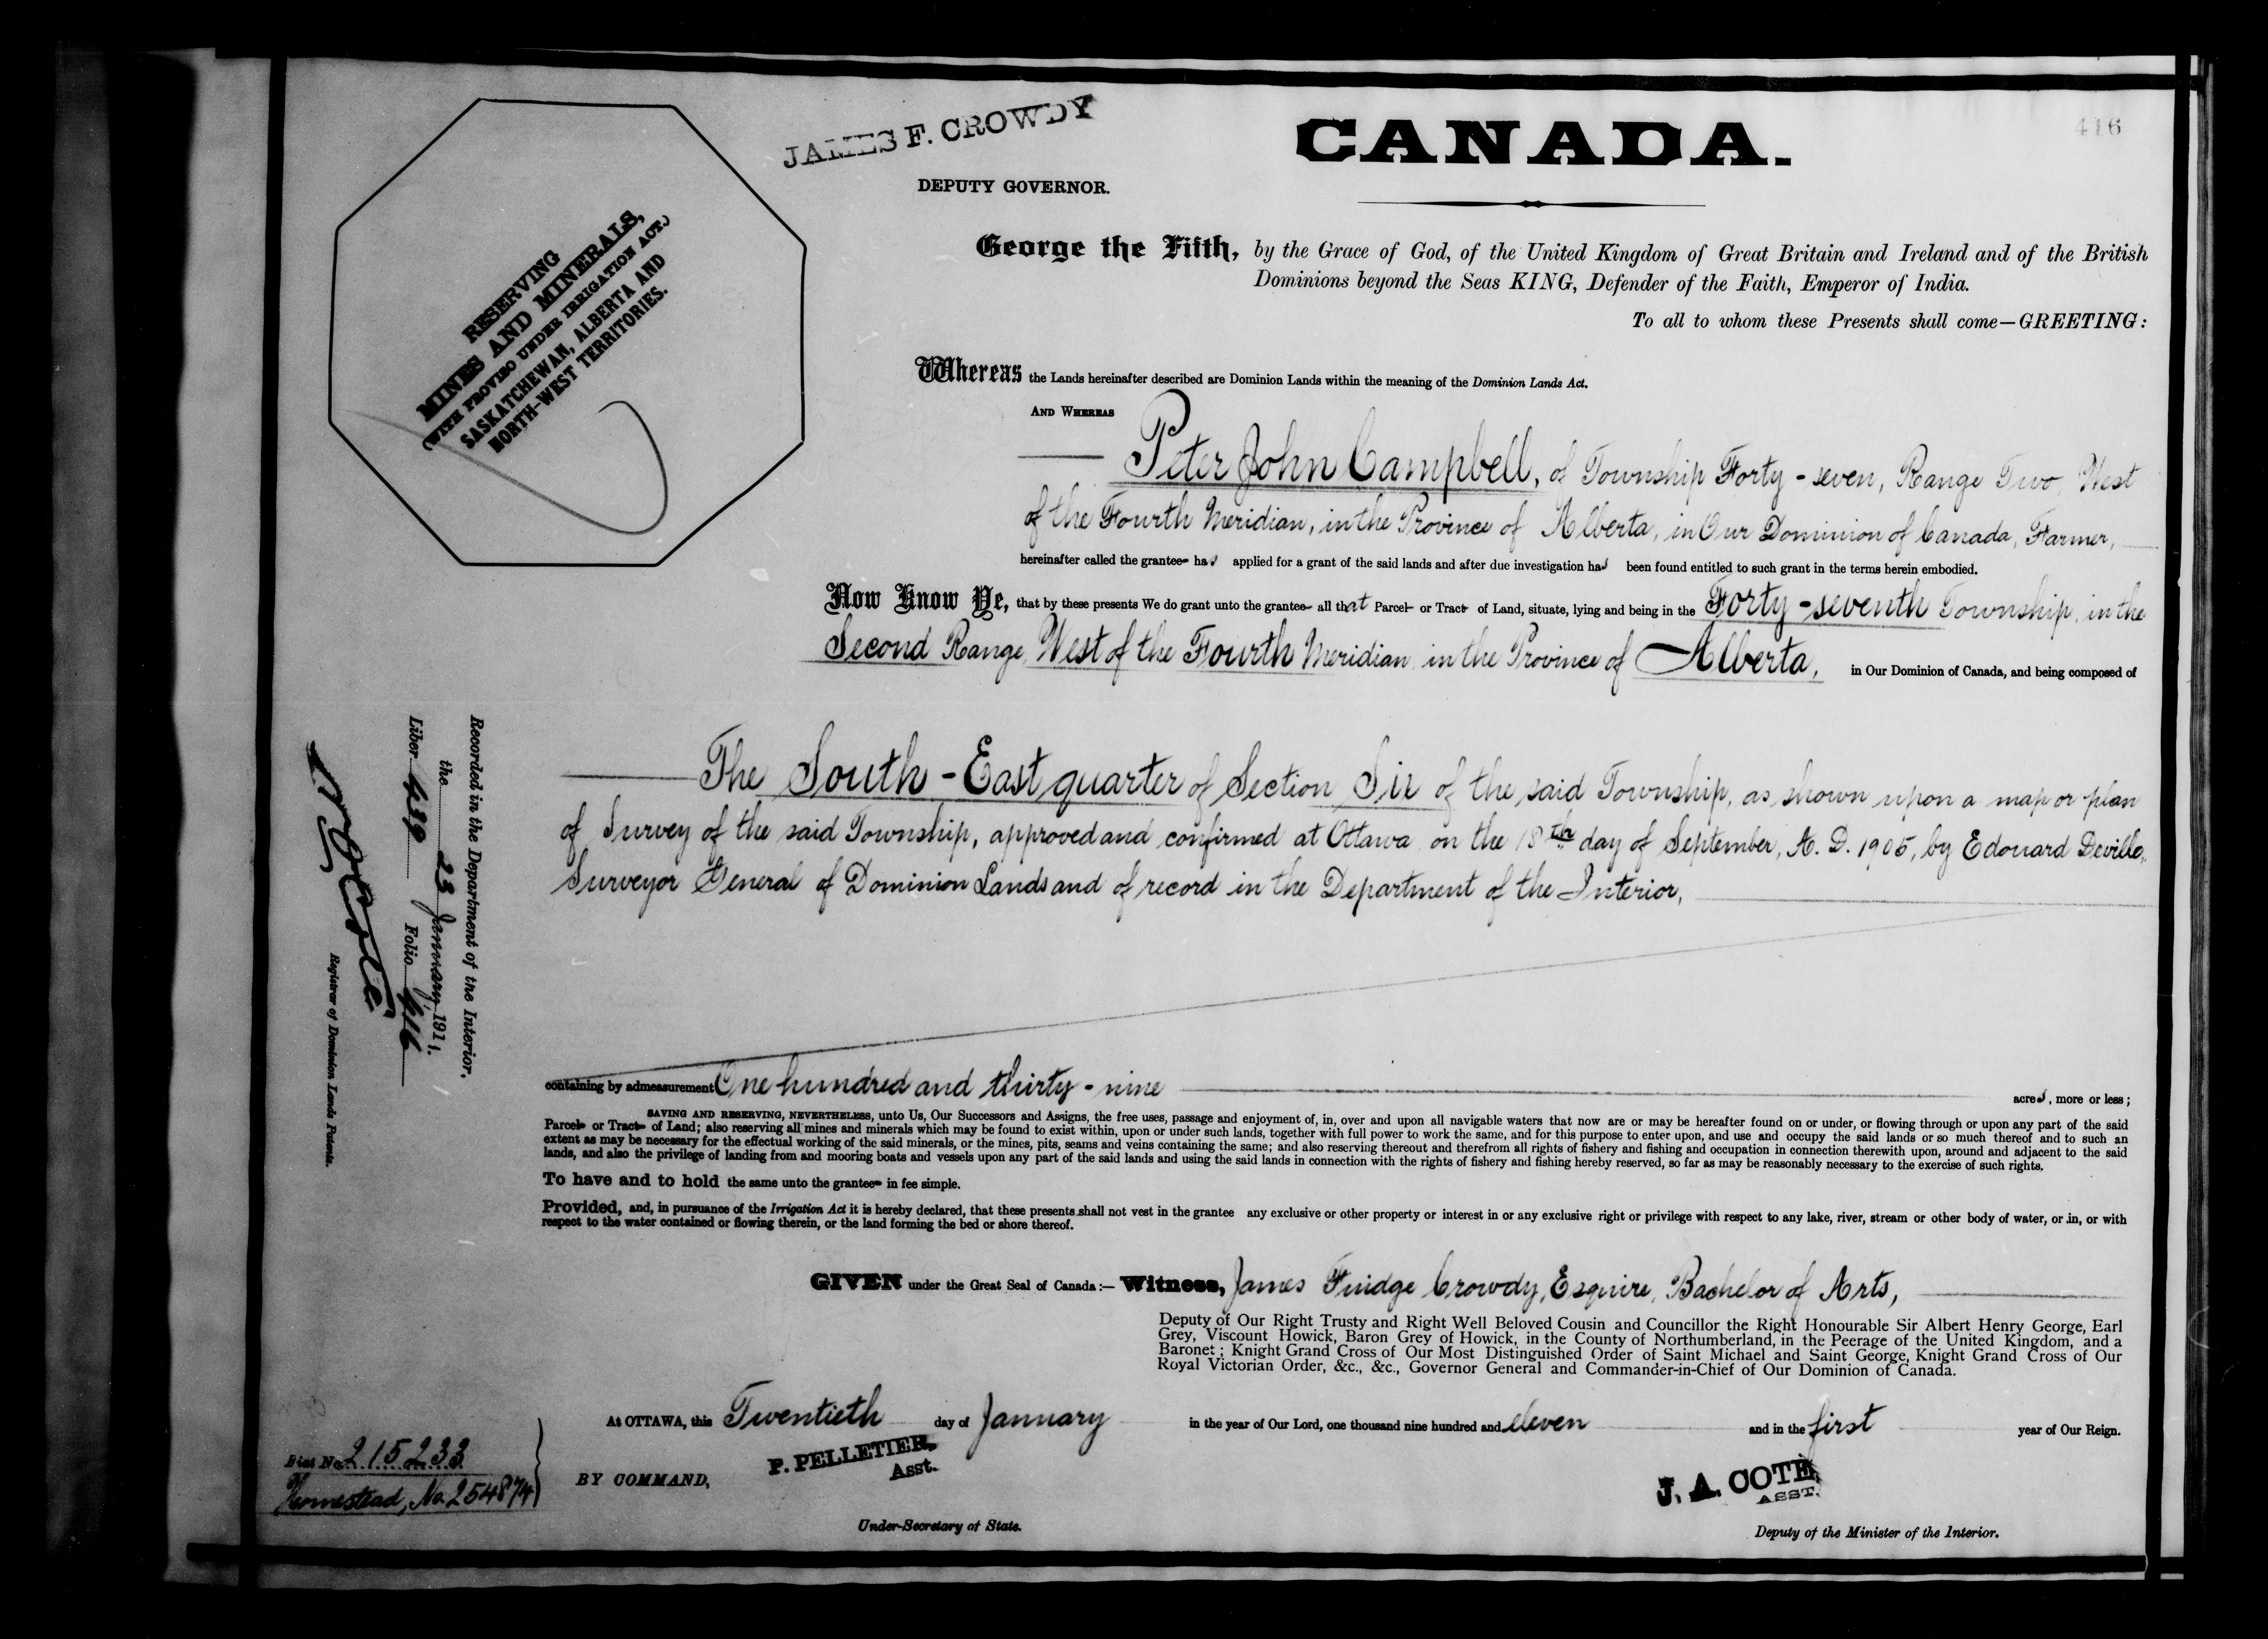 416
JAMES F. CROWDY
DEPUTY GOVERNOR.
CANADA.
RESERVING
MINES AND MINERALS,
(WITH PROVISO UNDER IRRIGATION ACT.)
SASKATCHEWAN, ALBERTA AND
NORTH-WEST TERRITORIES.
George the Fifth, by the Grace of God, of the United Kingdom of Great Britain and Ireland and of the British
Dominions beyond the Seas KING, Defender of the Faith, Emperor of India.
To all to whom these Presents shall come—GREETING:
Whereas the Lands hereinafter described are Dominion Lands within the meaning of the Dominion Lands Act.
AND WHEREAS
Peter John Campbell, of Township Forty-seven, Range Two, West
of the Fourth Meridian, in the Province of Alberta, in Our Dominion of Canada, Farmer,
hereinafter called the grantee has applied for a grant of the said lands and after due investigation has been found entitled to such grant in the terms herein embodied.
Now Know Ye, that by these presents We do grant unto the grantee all that Parcel or Tract of Land, situate, lying and being in the Forty-seventh Township, in the
Second Range, West of the Fourth Meridian, in the Province of Alberta, in Our Dominion of Canada, and being composed of
The South-East quarter of Section Six of the said Township, as shown upon a map or plan
of Survey of the said Township, approved and confirmed at Ottawa on the 18th day of September, A. D. 1905, by Edouard Deville,
Surveyor General of Dominion Lands and of record in the Department of the Interior,
containing by admeasurement One hundred and thirty-nine acres, more or less;
SAVING AND RESERVING, NEVERTHELESS, unto Us, Our Successors and Assigns, the free uses, passage and enjoyment of, in, over and upon all navigable waters that now are or may be hereafter found on or under, or flowing through or upon any part of the said
Parcel or Tract of Land; also reserving all mines and minerals which may be found to exist within, upon or under such lands, together with full power to work the same, and for this purpose to enter upon, and use and occupy the said lands or so much thereof and to such an
extent as may be necessary for the effectual working of the said minerals, or the mines, pits, seams and veins containing the same; and also reserving thereout and therefrom all rights of fishery and fishing and occupation in connection therewith upon, around and adjacent to the said
lands, and also the privilege of landing from and mooring boats and vessels upon any part of the said lands and using the said lands in connection with the rights of fishery and fishing hereby reserved, so far as may be reasonably necessary to the exercise of such rights.
To have and to hold the same unto the grantee in fee simple.
Provided, and, in pursuance of the Irrigation Act it is hereby declared, that these presents shall not vest in the grantee any exclusive or other property or interest in or any exclusive right or privilege with respect to any lake, river, stream or other body of water, or in, or with
respect to the water contained or flowing therein, or the land forming the bed or shore thereof.
GIVEN under the Great Seal of Canada:— Witness, James Fuidge Crowdy, Esquire, Bachelor of Arts,
Deputy of Our Right Trusty and Right Well Beloved Cousin and Councillor the Right Honourable Sir Albert Henry George, Earl
Grey, Viscount Howick, Baron Grey of Howick, in the County of Northumberland, in the Peerage of the United Kingdom, and a
Baronet; Knight Grand Cross of Our Most Distinguished Order of Saint Michael and Saint George, Knight Grand Cross of Our
Royal Victorian Order, &c., &c., Governor General and Commander-in-Chief of Our Dominion of Canada.
At OTTAWA, this Twentieth day of January in the year of Our Lord, one thousand nine hundred and eleven and in the first year of Our Reign.
BY COMMAND,
P. PELLETIER,
Asst.
Under-Secretary of State.
J. A. COTE
ASST.
Deputy of the Minister of the Interior.
Recorded in the Department of the Interior,
the 23 January 1911.
Liber 439 Folio 416
Registrar of Dominion Lands Patents.
Fiat No. 215233
Homestead, No. 254874